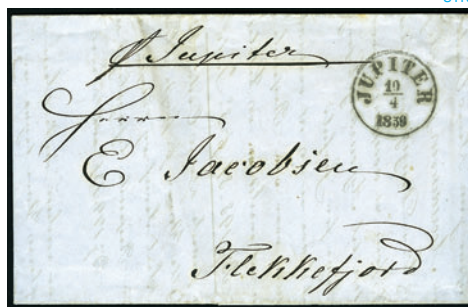 p Jupiter
JUPITER
10
4
1859
Herrn
E Jacobsen
Flekkefjord